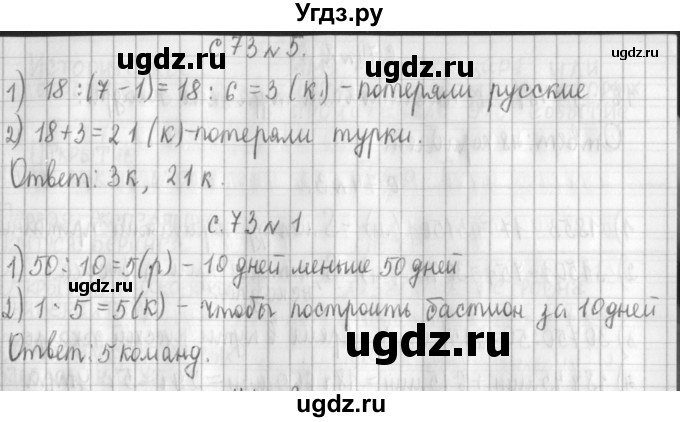 Угдз.ру
с. 73 № 5.
1) 18 : (7 - 1) = 18 : 6 = 3 (к.) - потеряли русские
2) 18 + 3 = 21 (к) - потеряли турки.
Ответ: 3 к, 21 к.
с. 73 № 1.
1) 50 : 10 = 5 (р) - 10 дней меньше 50 дней
2) 1 · 5 = 5 (к) - чтобы построить бастион за 10 дней
Ответ: 5 команд.
ugdz.ru
ugdz.ru
ugdz.ru
ugdz.ru
ugdz.ru
ugdz.ru
ugdz.ru
ugdz.ru